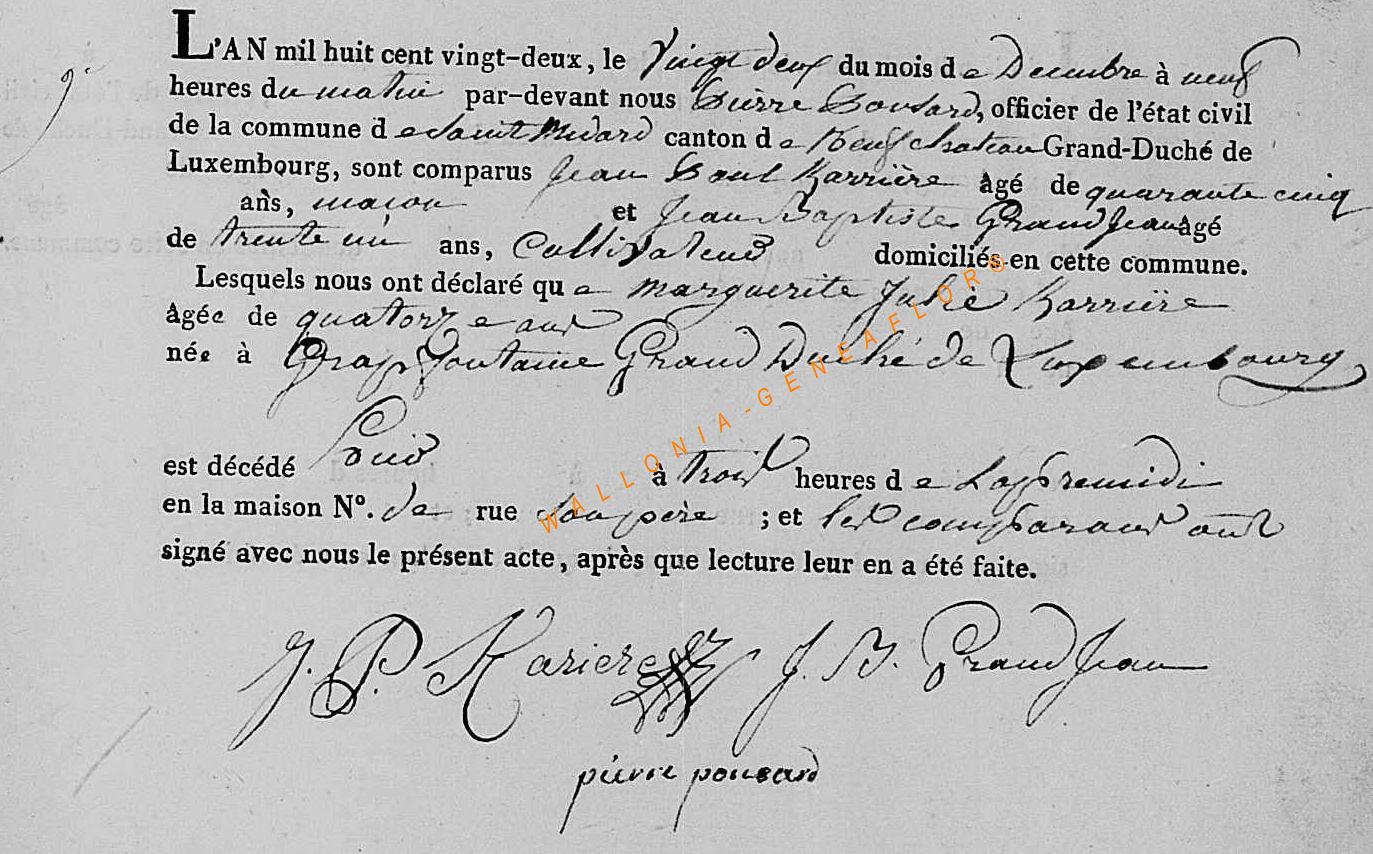 9.e
L'AN mil huit cent vingt-deux, le Vingt deux du mois de Decembre à neuf
heures du matin par-devant nous Pierre Pousard, officier de l'état civil
de la commune de Saint Medard canton de Neufchateau Grand-Duché de
Luxembourg, sont comparus Jean Poul Karrière âgé de quarante cinq
ans, maçon et Jean Baptiste Grand Jean âgé
de trente un ans, Cultivateur domiciliés en cette commune.
Lesquels nous ont déclaré que marguerite Julie Karrière
âgée de quatorze ans
née à Grapfontaine Grand Duché de Luxembourg
est décédé à trois heures de Lapremidi
en la maison N°. de rue son père ; et les comparans ont
signé avec nous le présent acte, après que lecture leur en a été faite.
J. P. Kariere J. B. Grand Jean
pierre pousard
WALLONIA-GENEAFLOR©